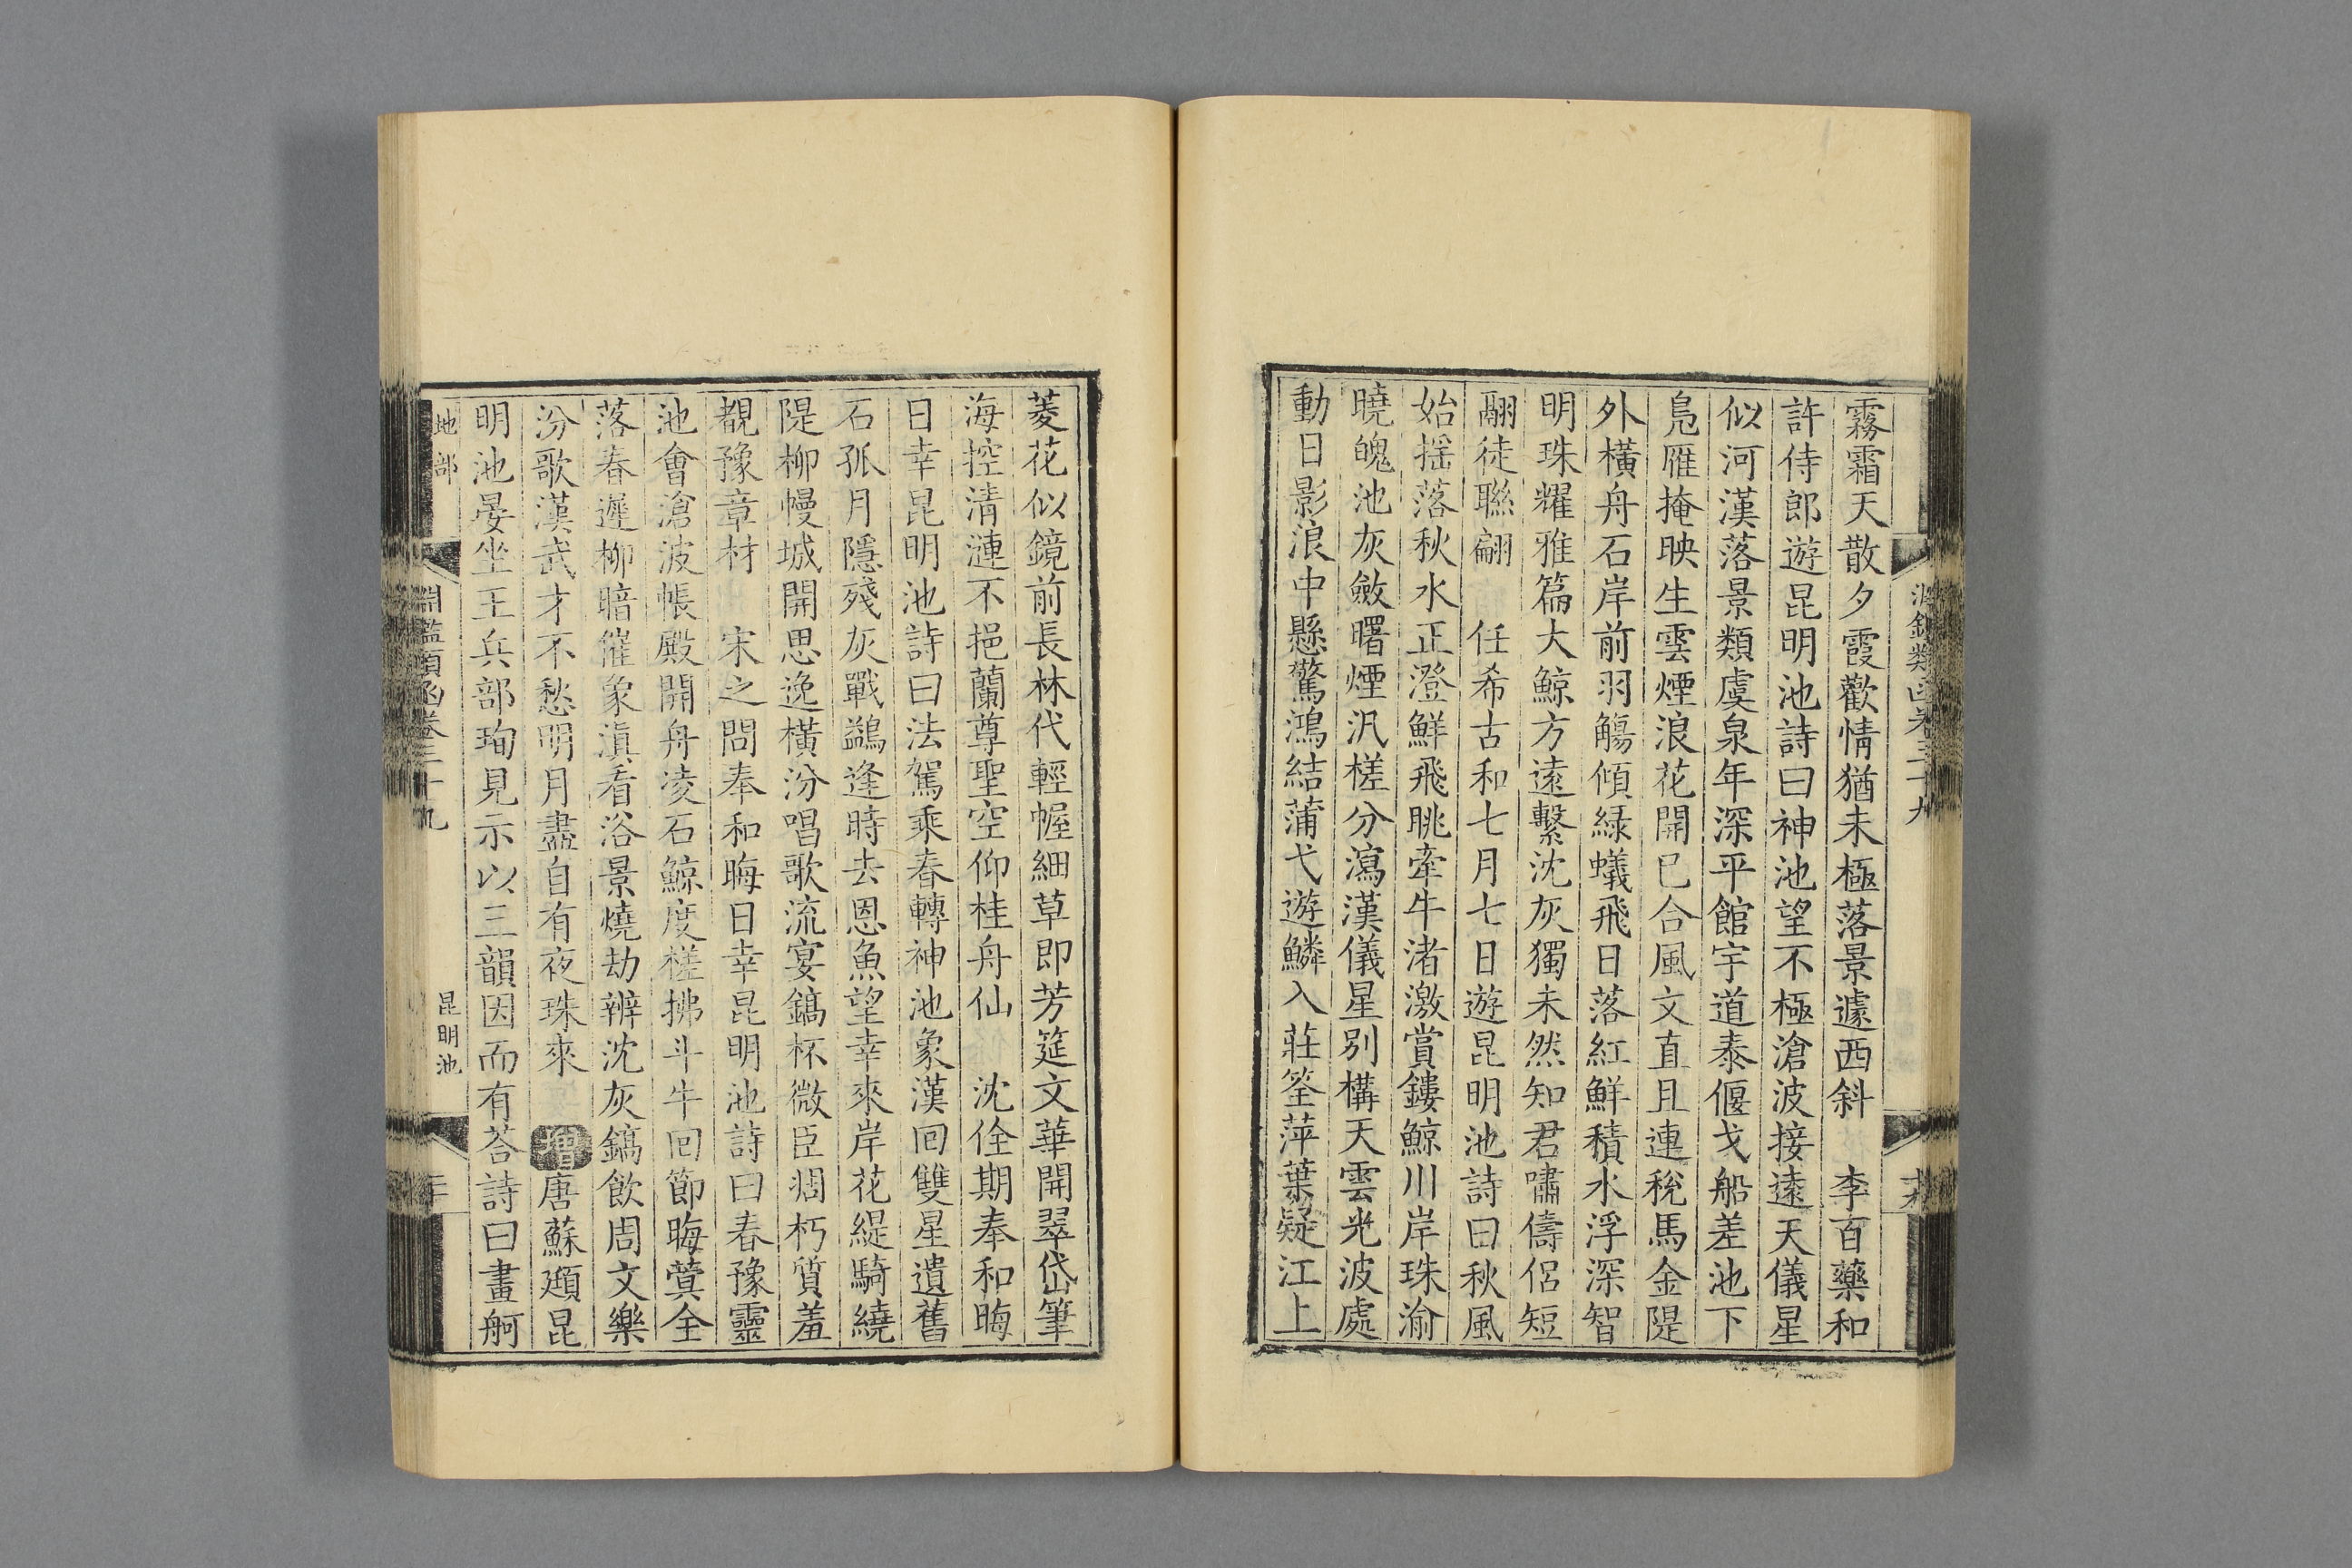 霧霜天散夕霞歡情猶未極落景遽西斜　李百藥和
許侍郎遊昆明池詩曰神池望不極滄波接遠天儀星
似河漢落景類虞泉年深平館宇道泰偃戈船差池下
鳧雁掩映生雲煙浪花開已合風文直且連稅馬金隄
外橫舟石岸前羽觴傾綠蟻飛日落紅鮮積水浮深智
明珠耀雅篇大鯨方遠繫沈灰獨未然知君嘯儔侶短
翮徒聯翩　任希古和七月七日遊昆明池詩曰秋風
始搖落秋水正澄鮮飛眺牽牛渚激賞鏤鯨川岸珠淪
曉魄池灰斂曙煙汎槎分瀉漢儀星別構天雲光波處
動日影浪中懸驚鴻結蒲弋遊鱗入莊筌萍葉疑江上
菱花似鏡前長林代輕幄細草即芳筵文華開翠岱筆
海控清漣不挹蘭尊聖空仰桂舟仙　沈佺期奉和晦
日幸昆明池詩曰法駕乘春轉神池象漢回雙星遺舊
石孤月隱殘灰戰鷁逢時去恩魚望幸來岸花緹騎繞
隄柳幔城開思逸橫汾唱歌流宴鎬杯微臣凋朽質羞
覩豫章材　宋之問奉和晦日幸昆明池詩曰春豫靈
池會滄波帳殿開舟凌石鯨度槎拂斗牛回節晦蓂全
落春遲柳暗催象滇看浴景燒劫辨沈灰鎬飲周文樂
汾歌漢武才不愁明月盡自有夜珠來　增唐蘇頲昆
明池晏坐王兵部珣見示以三韻因而有荅詩曰畫舸
地部
淵鑑類函卷三十九
昆明池